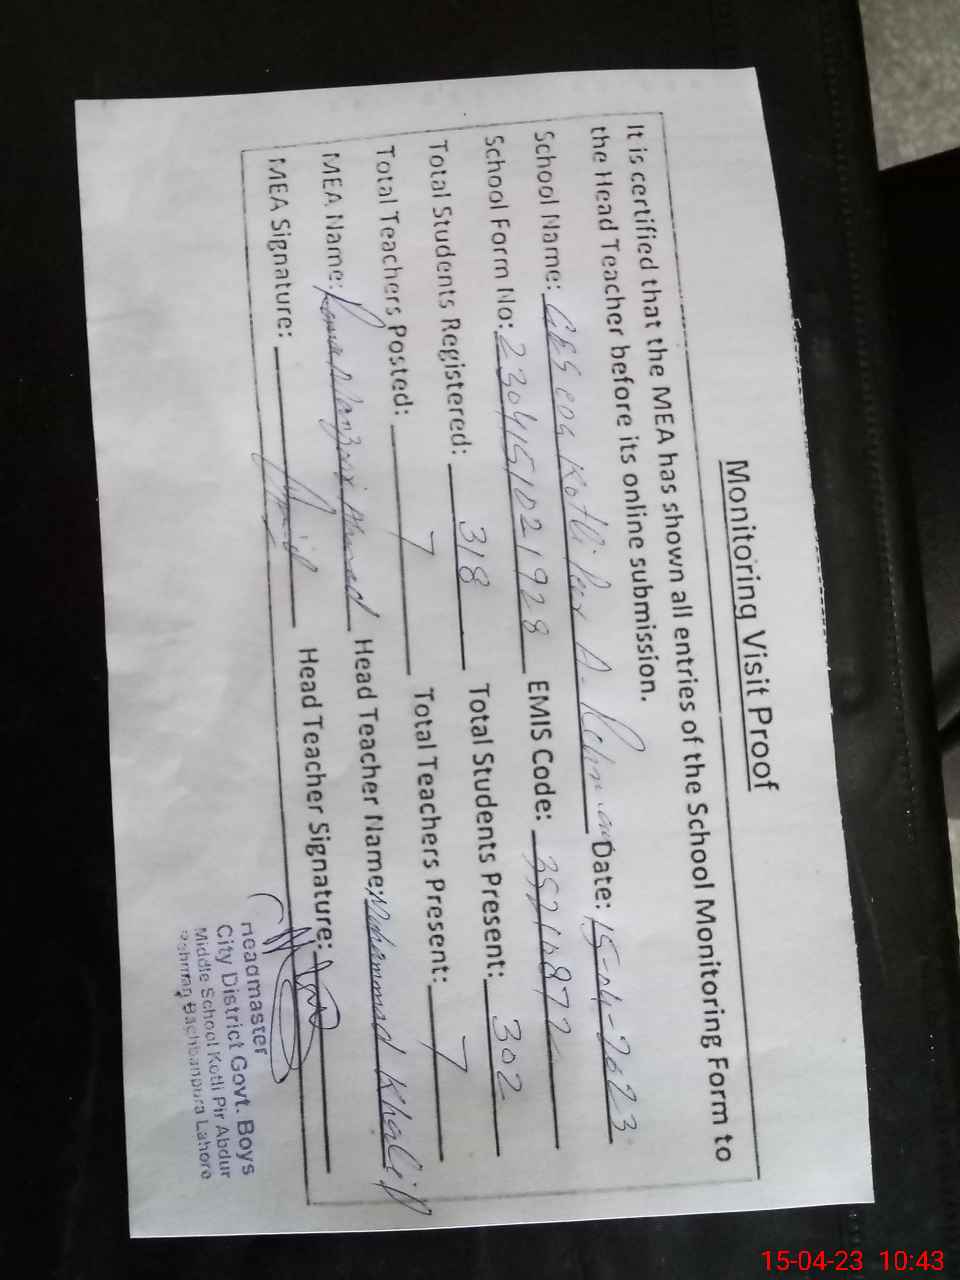 Monitoring Visit Proof
It is certified that the MEA has shown all entries of the School Monitoring Form to
the Head Teacher before its online submission.
School Name: Kotli Peer A. Rehman Date: 15-04-2023
School Form No: 2304151021928 EMIS Code:
Total Students Registered: 318 Total Students Present: 302
Total Teachers Posted: 7 Total Teachers Present: 7
MEA Name: Ahmad Head Teacher Name: Muhammad Khalid
MEA Signature: Head Teacher Signature:
Headmaster
City District Govt. Boys
Middle School Kotli Pir Abdur
Rehman Baghbanpura Lahore
15-04-23 10:43